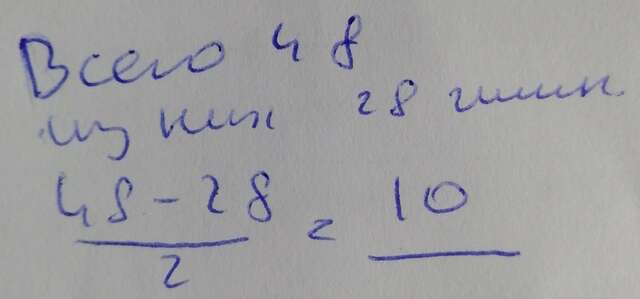 Всего 48
из них 28
48-28
2
= 10